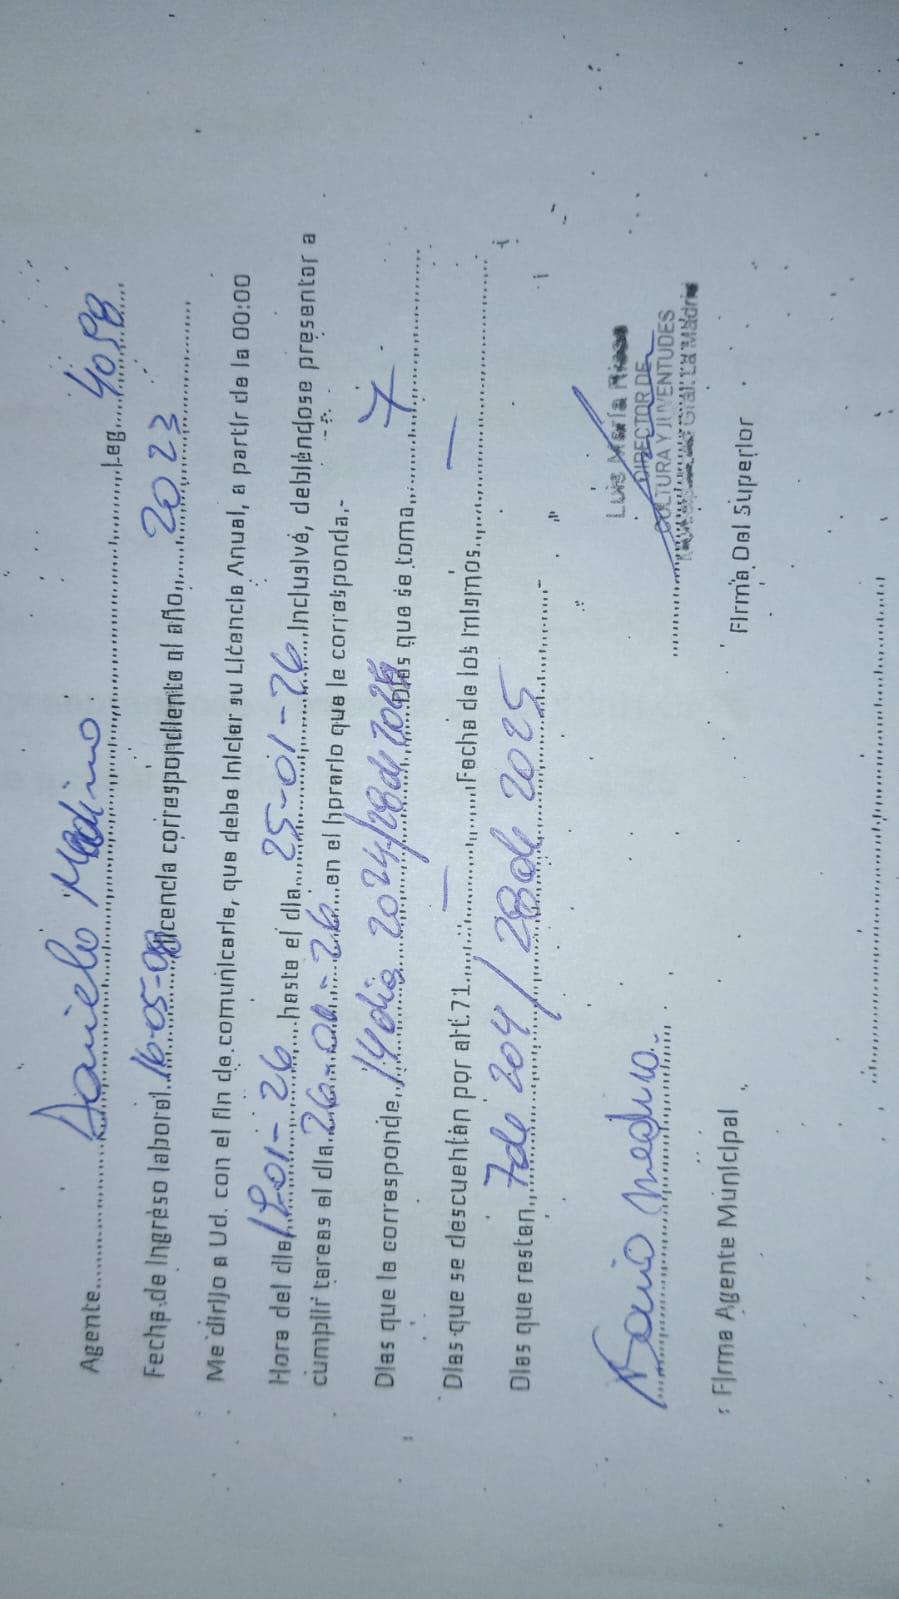 Agente Daniela Medina Leg. 4098
Fecha de ingreso laboral 16-05-08 licencia correspondiente al año 2023
Me dirijo a Ud. con el fin de comunicarle, que debe iniciar su Licencia Anual, a partir de la 00:00
Hora del día 01-26 hasta el día 25-01-26 inclusivé, debiéndose presentar a
cumplir tareas al día 26-01-26 en el horario que le corresponda.-
Días que le corresponde 14 dia 2024/28 de 2025 Días que se toma 7
Días que se descuentan por art.71 — Fecha de los mismos —
Días que restan 7 de 204 / 28 de 2025 -
Luis María
DIRECTOR DE
CULTURA Y JUVENTUDES
Gral. La Madrid
Firma Agente Municipal Firma Del Superior